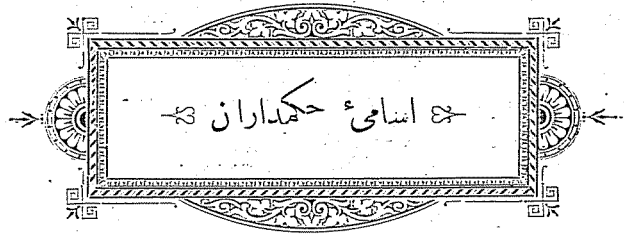 اسامیٔ حکمداران